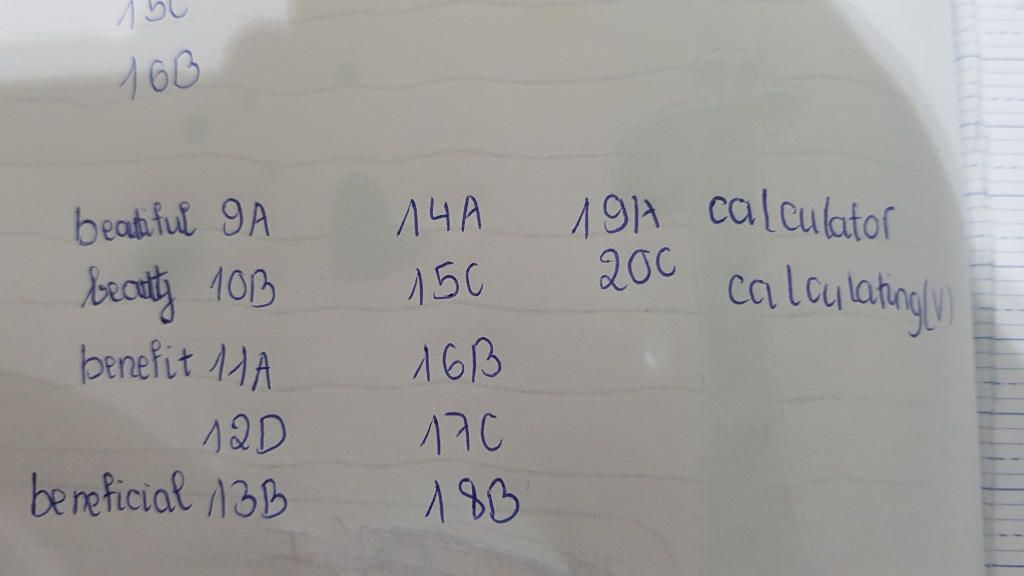 15C
16B
beatiful 9A 14A 19A calculator
beauty 10B 15C 20C calculating(v)
benefit 11A 16B
12D 17C
beneficial 13B 18B